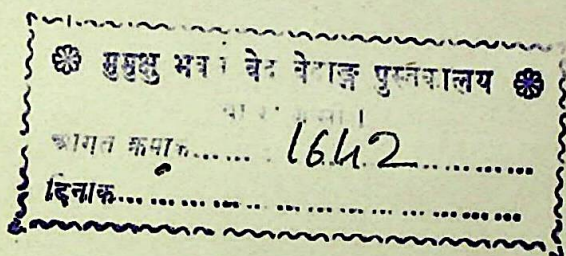 ❁ मुमुक्षु भवन वेद वेदाङ्ग पुस्तकालय ❁
आगत क्रमांक...... 1642 ............
दिनांक..........................................